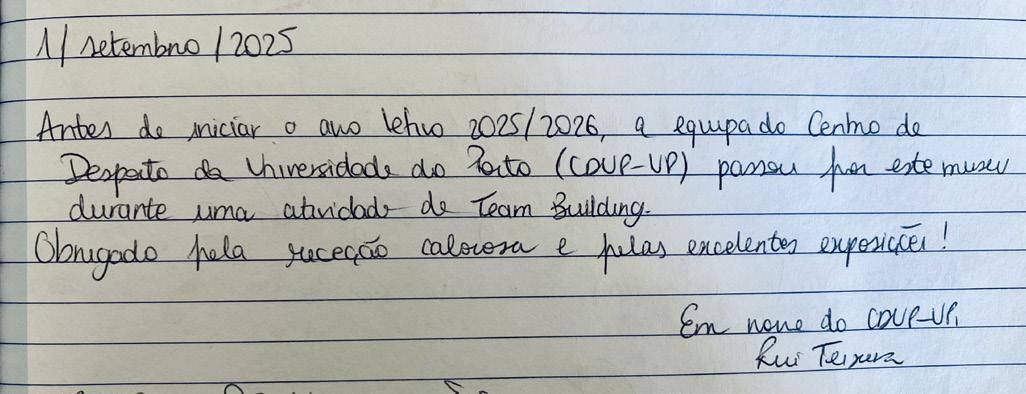 1/setembro/2025
Antes de iniciar o ano letivo 2025/2026, a equipa do Centro de
Desporto da Universidade do Porto (CDUP-UP) passou por este museu
durante uma atividade de Team Building.
Obrigado pela receção calorosa e pelas excelentes exposições!
Em nome do CDUP-UP,
Rui Teixeira